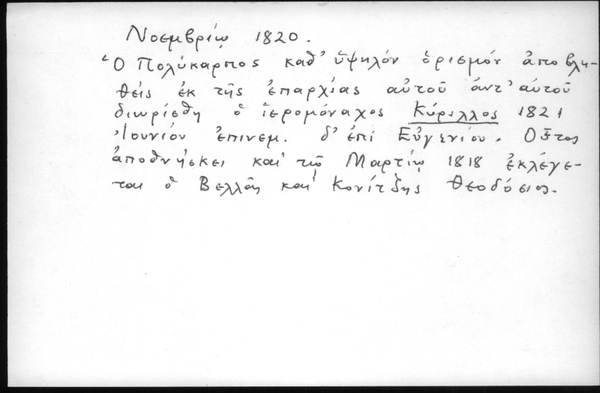 Νοεμβρίῳ 1820.
Ὁ Πολύκαρπος καθ' ὑψηλόν ὁρισμόν ἀποβλη-
θείς ἐκ τῆς ἐπαρχίας αὐτοῦ ἀντ' αὐτοῦ
διωρίσθη ὁ ἱερομόναχος Κύριλλος 1821
Ἰουνίου ἐπινεμ. δ' ἐπί Εὐγενίου. Οὗτος
ἀποθνήσκει καί τῷ Μαρτίῳ 1818 ἐκλέγε-
ται ὁ Βελλᾶς καί Κονίτσης Θεοδόσιος.